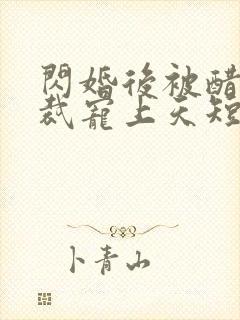 閃婚後被醋
裁寵上天短
卜青山